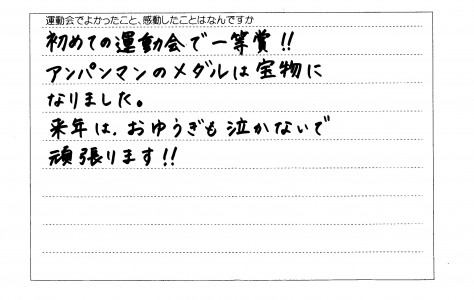 運動会でよかったこと、感動したことはなんですか
初めての運動会で一等賞!!
アンパンマンのメダルは宝物に
なりました。
来年は、おゆうぎも泣かないで
頑張ります!!